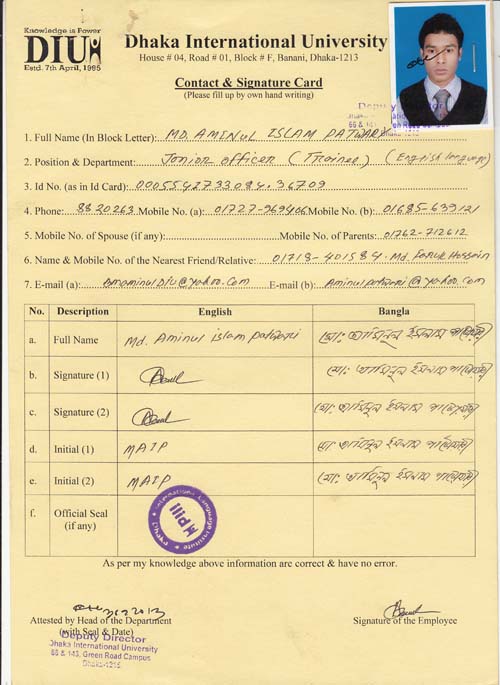 Knowledge is Power
DIU
Estd. 7th April, 1995
Dhaka International University
House # 04, Road # 01, Block # F, Banani, Dhaka-1213
Contact & Signature Card
(Please fill up by own hand writing)
Deputy Director
66 & 143,
1. Full Name (In Block Letter): MD. AMINUL ISLAM PATWARY
2. Position & Department: Junior officer (Trainee) (English language)
3. Id No. (as in Id Card): 0005542733084.36709
4. Phone: 8820263 Mobile No. (a): 01727-969406 Mobile No. (b): 01685-639121
5. Mobile No. of Spouse (if any): Mobile No. of Parents: 01762-712612
6. Name & Mobile No. of the Nearest Friend/Relative: 01718-401584. Md. Faruk Hossain
7. E-mail (a): bmaminulDIU@yahoo.com E-mail (b): Aminulpatwari@yahoo.com
No. Description English Bangla
a. Full Name Md. Aminul islam patwari মো: আমিনুল ইসলাম পাটোয়ারী
b. Signature (1) মো: আমিনুল ইসলাম পাটোয়ারী
c. Signature (2) মো: আমিনুল ইসলাম পাটোয়ারী
d. Initial (1) MAIP মো: আমিনুল ইসলাম পাটোয়ারী
e. Initial (2) MAIP মো: আমিনুল ইসলাম পাটোয়ারী
f. Official Seal (if any) International Language Institute Dhaka
As per my knowledge above information are correct & have no error.
Attested by Head of the Department Signature of the Employee
(with Seal & Date)
Deputy Director
Dhaka International University
66 & 143, Green Road Campus
Dhaka-1215